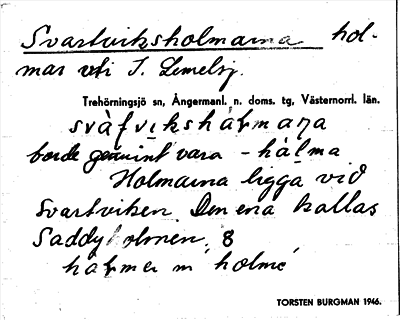 Svartviksholmarna hol-
mar uti I. Lemelsj.
Trehörningsjö sn, Ångermanl. n. doms. tg, Västernorrl. län.
svàfvikshàƚmaṇa
borde genuint vara - hàlma
Holmarna ligga vid
Svartviken. Den ena kallas
Saddyholmen. 8
TORSTEN BURGMAN 1946.